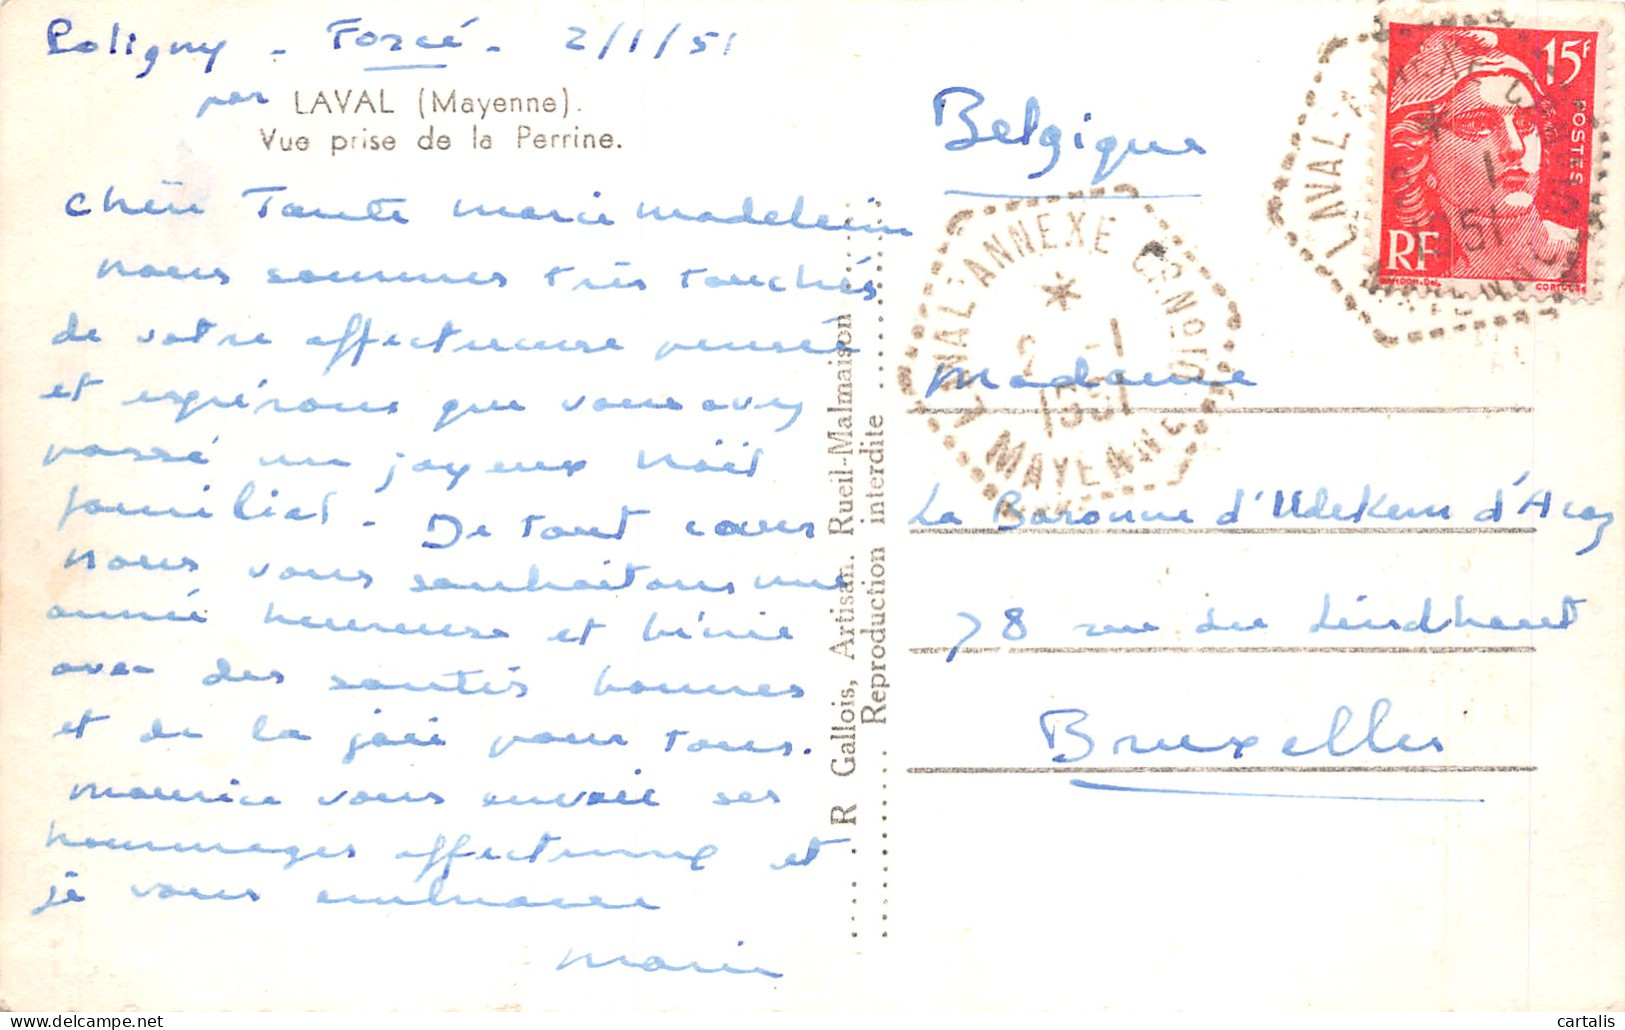 Poligny - Forcé - 2/1/51
par LAVAL (Mayenne).
Vue prise de la Perrine.
Chère Tante Marie Madeleine
nous sommes très touchés
de votre affectueuse pensée
et espérons que vous avez
passé un joyeux Noël
familial. De tout cœur
nous vous souhaitons une
année heureuse et bénie
avec des santés bonnes
et de la joie pour tous.
Maurice vous envoie ses
hommages affectueux et
je vous embrasse
Marie
R Gallois, Artisan. Rueil-Malmaison
Reproduction interdite
Belgique
Madame
La Baronne d'Udekem d'Acoz
78 rue du
Bruxelles
LAVAL ANNEXE
2 -1
1951
MAYENNE
15F
POSTES
RF
GANDON.Del.
CORTOT.Sc
LAVAL
1
1951
cartalis